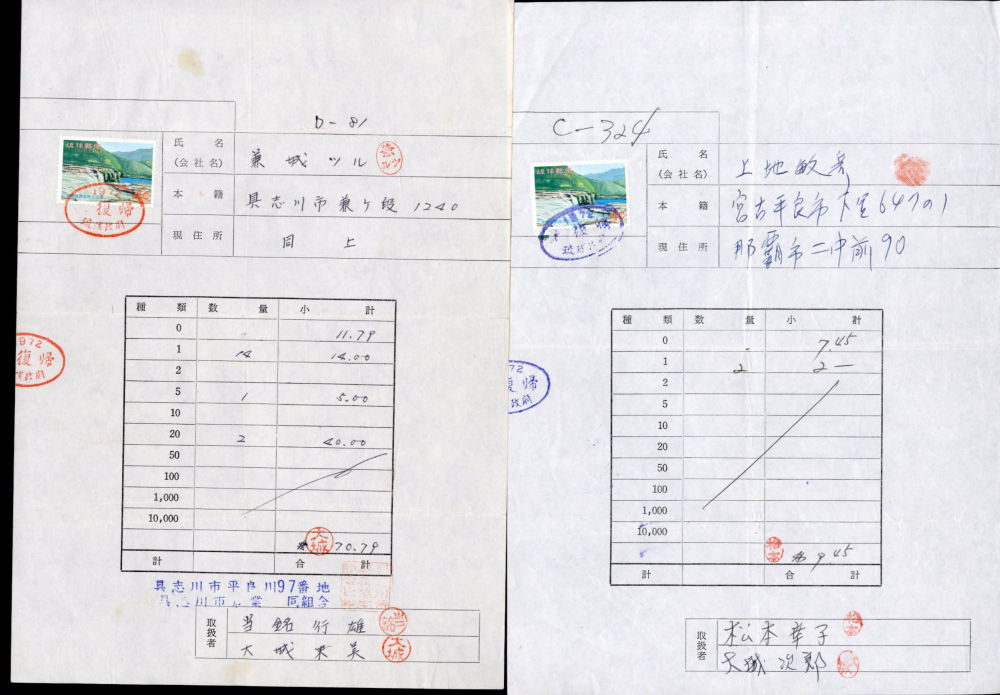 D-81
琉球郵便
氏名
(会社名)
兼城ツル
本籍
具志川市兼ケ段1240
現住所
同上
1972
復帰
琉球政府
種類 数量 小計
0 11.79
1 14 14.00
2
5 1 5.00
10
20 2 40.00
50
100
1,000
10,000
大城
70.79
計 合計
具志川市平良川97番地
取扱者
当銘行雄
大城
C-324
琉球郵便
氏名
(会社名)
上地
本籍
宮古平良市下里647の1
現住所
那覇市二中前90
1972
復帰
琉球政府
種類 数量 小計
0 7.45
1 2 2—
2
5
10
20
50
100
1,000
10,000
9.45
計 合計
取扱者
松本幸子
大城次郎